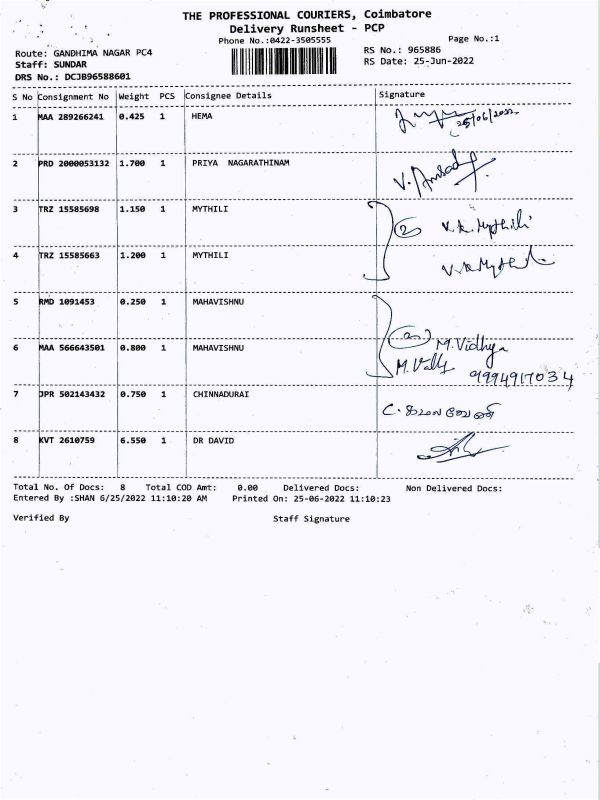 THE PROFESSIONAL COURIERS, Coimbatore
Delivery Runsheet - PCP
Phone No.:0422-3505555 Page No.:1
Route: GANDHIMA NAGAR PC4 RS No.: 965886
Staff: SUNDAR RS Date: 25-Jun-2022
DRS No.: DCJB96588601
S No Consignment No Weight PCS Consignee Details Signature
1 MAA 289266241 0.425 1 HEMA 25/06/2022
2 PRD 2000053132 1.700 1 PRIYA NAGARATHINAM V.
3 TRZ 15585698 1.150 1 MYTHILI (2) V.K. Mythili
4 TRZ 15585663 1.200 1 MYTHILI V.K Mythili
5 RMD 1091453 0.250 1 MAHAVISHNU
6 MAA 566643501 0.800 1 MAHAVISHNU (2) M.Vidhya
9994917034
7 JPR 502143432 0.750 1 CHINNADURAI
8 KVT 2610759 6.550 1 DR DAVID
Total No. Of Docs: 8 Total COD Amt: 0.00 Delivered Docs: Non Delivered Docs:
Entered By :SHAN 6/25/2022 11:10:20 AM Printed On: 25-06-2022 11:10:23
Verified By Staff Signature